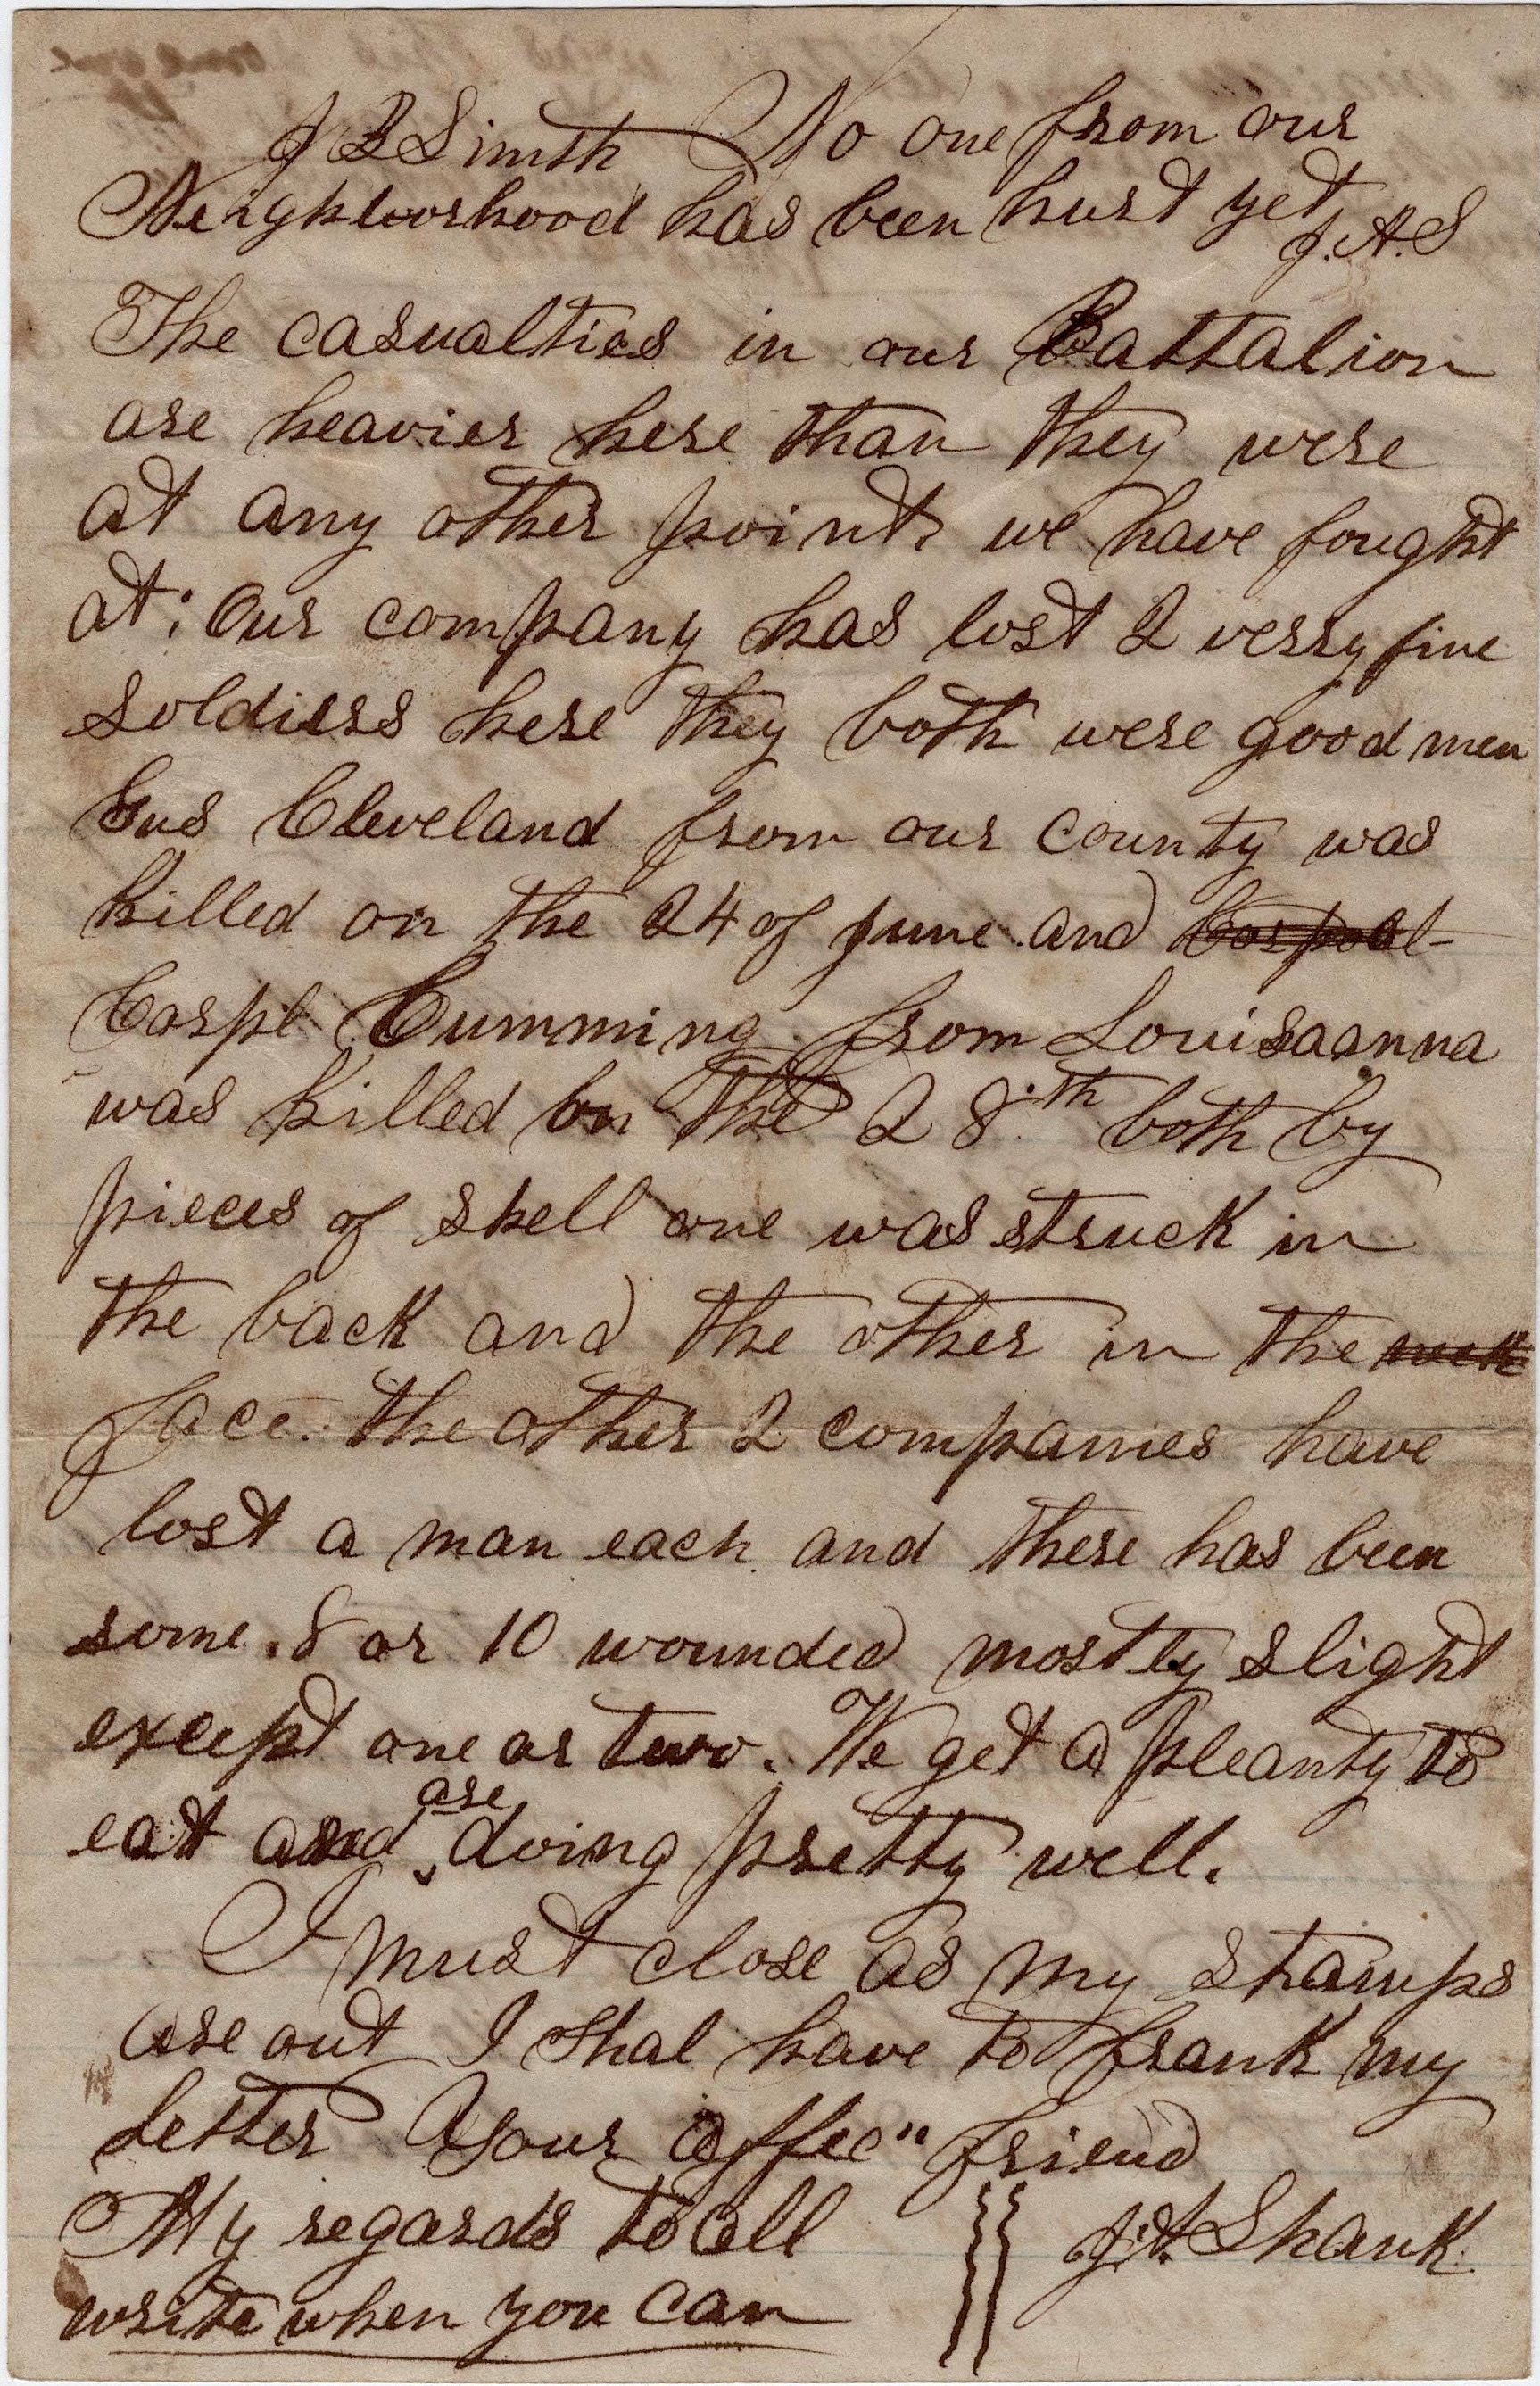 J B Simth No one from our
Neighborhood has been hurt yet J.A.S
The casualties in our Battalion
are heavier here than they were
at any other point we have fought
at; Our company has lost 2 verry fine
soldiers here they both were good men
Gus Cleveland from our county was
killed on the 24 of June and Corporal
Corpl Cumming from Louisaanna
was killed on the 28th both by
pieces of shell one was struck in
the back and the other in the neck
face. the other 2 companies have
lost a man each and there has been
some 8 or 10 wounded mostly slight
except one or two. We get a pleanty to
eat and are doing pretty well.
I must close as my stamps
are out I shal have to frank my
letter Your affec" friend
My regards to all J.A. Shank
write when you can